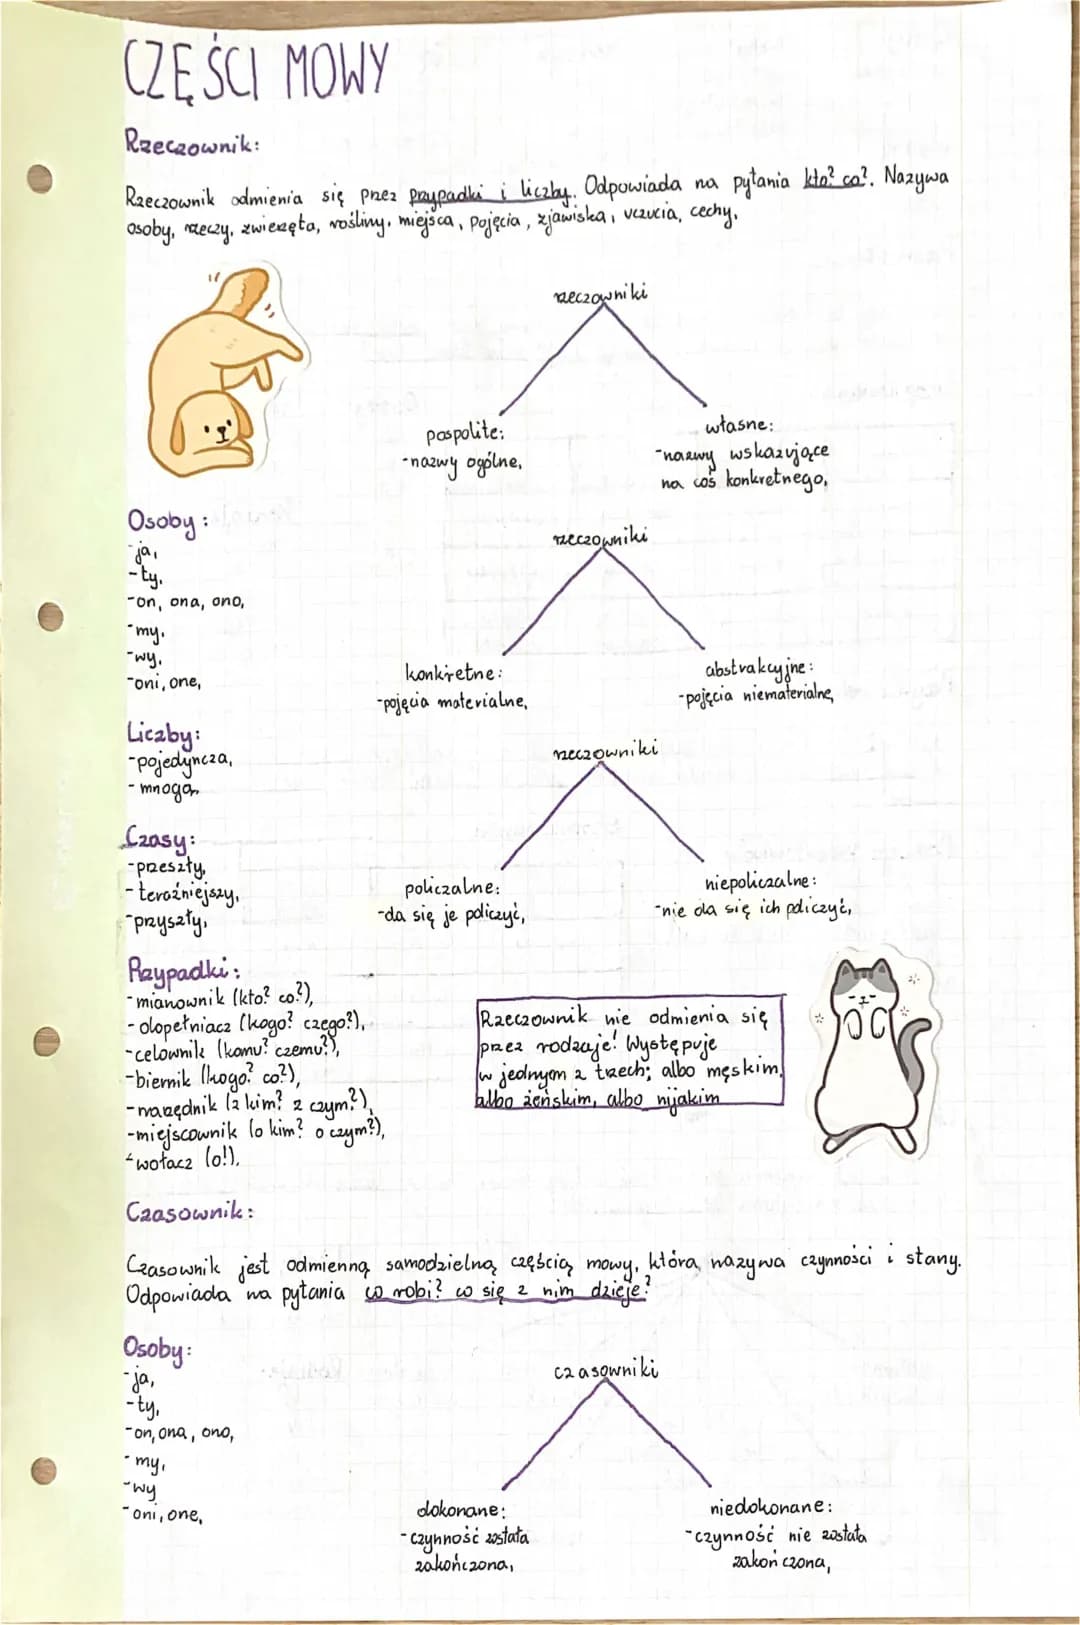 CZĘŚCI MOWY
Rzeczownik:
Rzeczownik odmienia się przez przypadki i liczby. Odpowiada na pytania kto? co?. Nazywa
osoby, rzeczy, zwierzęta, rośliny, miejsca, pojęcia, zjawiska, uczucia, cechy,
rzeczowniki
pospolite:
-nazwy ogólne,
własne:
-nazwy wskazujące
na coś konkretnego,
Osoby:
-ja,
-ty,
-on, ona, ono,
-my,
-wy,
-oni, one,
rzeczowniki
konkretne:
-pojęcia materialne,
abstrakcyjne:
-pojęcia niematerialne,
Liczby:
-pojedyncza,
-mnoga,
rzeczowniki
policzalne:
-da się je policzyć,
niepoliczalne:
-nie da się ich policzyć,
Czasy:
-przeszły,
-teraźniejszy,
-przyszły,
Przypadki:
-mianownik (kto? co?),
-dopełniacz (kogo? czego?),
-celownik (komu? czemu?),
-biernik (kogo? co?),
-narzędnik (z kim? z czym?),
-miejscownik (o kim? o czym?),
-wołacz (o!).
Rzeczownik nie odmienia się
przez rodzaje! Występuje
w jednym z trzech; albo męskim,
albo żeńskim, albo nijakim
Czasownik:
Czasownik jest odmienną samodzielną częścią mowy, która nazywa czynności i stany.
Odpowiada na pytania co robi? co się z nim dzieje?
Osoby:
-ja,
-ty,
-on, ona, ono,
-my,
-wy
-oni, one,
czasowniki
dokonane:
-czynność została
zakończona,
niedokonane:
-czynność nie została
zakończona,